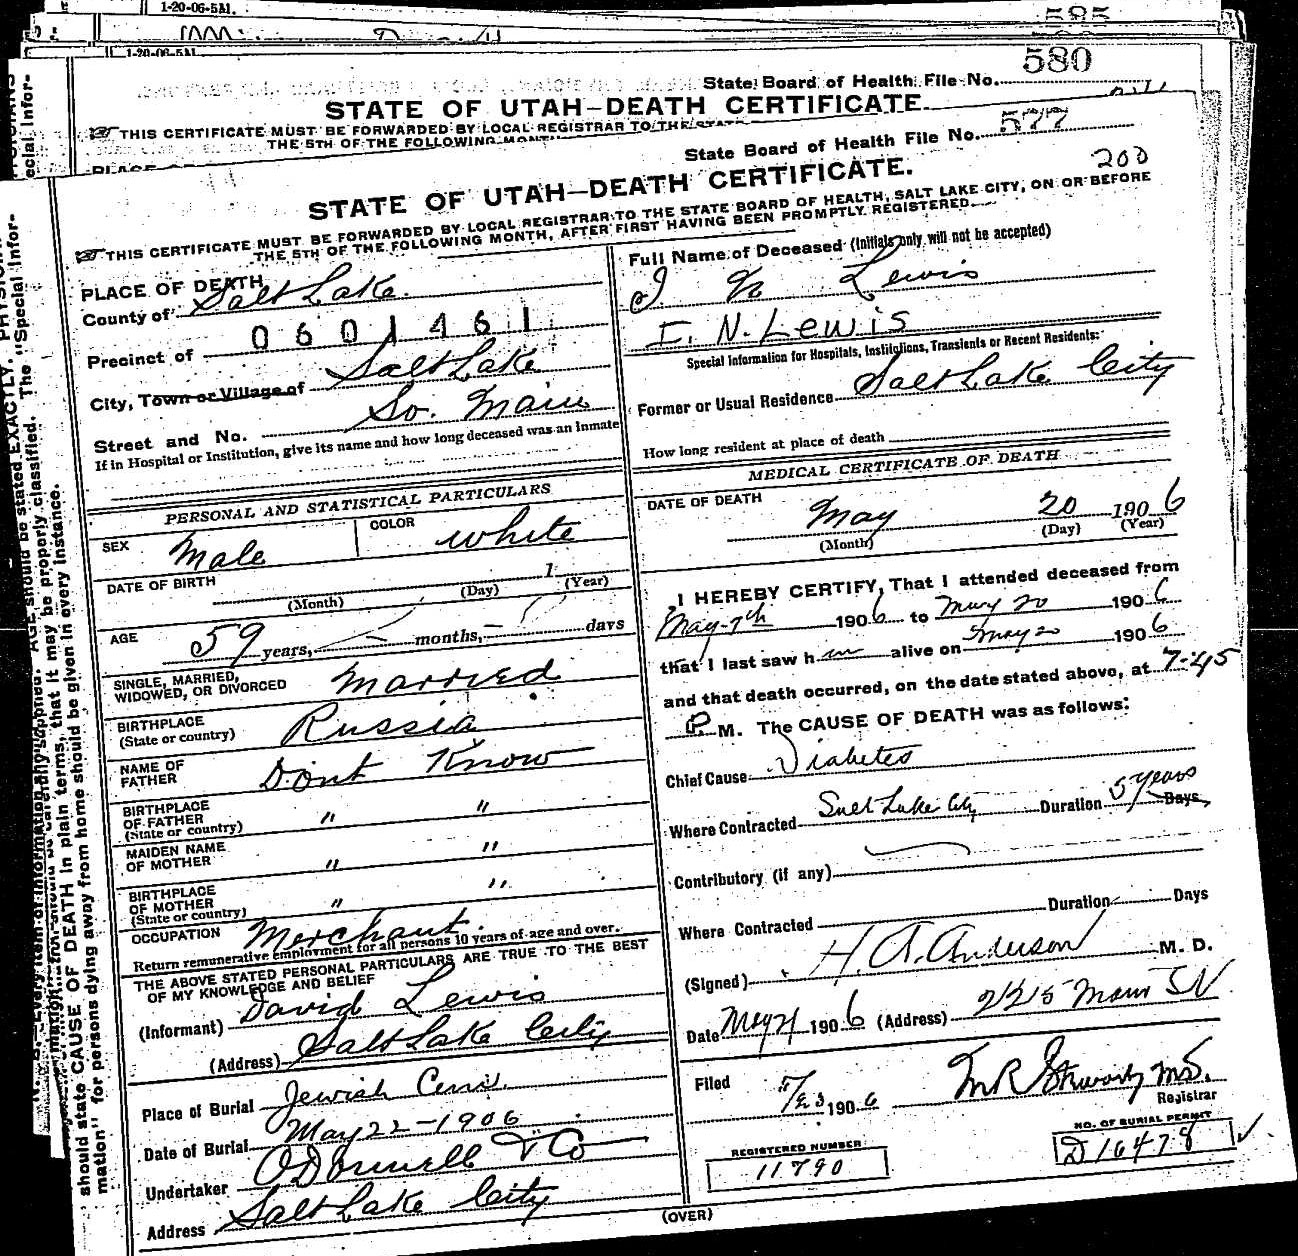 1-20-06-5A1.
585
1-20-06-5A1
State Board of Health File No. 580
STATE OF UTAH—DEATH CERTIFICATE.
THIS CERTIFICATE MUST BE FORWARDED BY LOCAL REGISTRAR TO THE STATE
THE 5TH OF THE FOLLOWING MONTH
State Board of Health File No. 577
200
STATE OF UTAH—DEATH CERTIFICATE.
THIS CERTIFICATE MUST BE FORWARDED BY LOCAL REGISTRAR TO THE STATE BOARD OF HEALTH, SALT LAKE CITY, ON OR BEFORE
THE 5TH OF THE FOLLOWING MONTH, AFTER FIRST HAVING BEEN PROMPTLY REGISTERED.
PLACE OF DEATH
County of Salt Lake.
0601461
Precinct of
City, Town or Village of Salt Lake
Street and No. So. Main
If in Hospital or Institution, give its name and how long deceased was an Inmate
PERSONAL AND STATISTICAL PARTICULARS
SEX Male COLOR white
DATE OF BIRTH 1
(Month) (Day) (Year)
AGE 59 years, — months, — days
SINGLE, MARRIED,
WIDOWED, OR DIVORCED Married
BIRTHPLACE
(State or country) Russia
NAME OF
FATHER Dont Know
BIRTHPLACE
OF FATHER
(State or country) " "
MAIDEN NAME
OF MOTHER " "
BIRTHPLACE
OF MOTHER
(State or country) " "
OCCUPATION Merchant.
Return remunerative employment for all persons 10 years of age and over.
THE ABOVE STATED PERSONAL PARTICULARS ARE TRUE TO THE BEST
OF MY KNOWLEDGE AND BELIEF
(Informant) David Lewis
(Address) Salt Lake City
Place of Burial Jewish Cem.
Date of Burial May 22-1906
Undertaker O'Donnell & Co
Address Salt Lake City
Full Name of Deceased (Initials only will not be accepted)
I N Lewis
I. N. Lewis
Special Information for Hospitals, Institutions, Transients or Recent Residents:
Former or Usual Residence Salt Lake City
How long resident at place of death
MEDICAL CERTIFICATE OF DEATH
DATE OF DEATH
May 20 1906
(Month) (Day) (Year)
I HEREBY CERTIFY, That I attended deceased from
May-7th 1906 to May 20 1906
that I last saw him alive on May 20 1906
and that death occurred, on the date stated above, at 7-45
P. M. The CAUSE OF DEATH was as follows:
Chief Cause Diabetes
Where Contracted Salt Lake City Duration 5 years Days
Contributory (if any)
Where Contracted Duration Days
(Signed) H. A. Anderson M. D.
Date May 21 1906 (Address) 22 1/2 S Main St
Filed 5/23 1906
Registrar
REGISTERED NUMBER
11790
NO. OF BURIAL PERMIT
D16478
(OVER)
should state CAUSE OF DEATH in plain terms, that it may be properly classified. The "Special Infor-
mation" for persons dying away from home should be given in every instance.